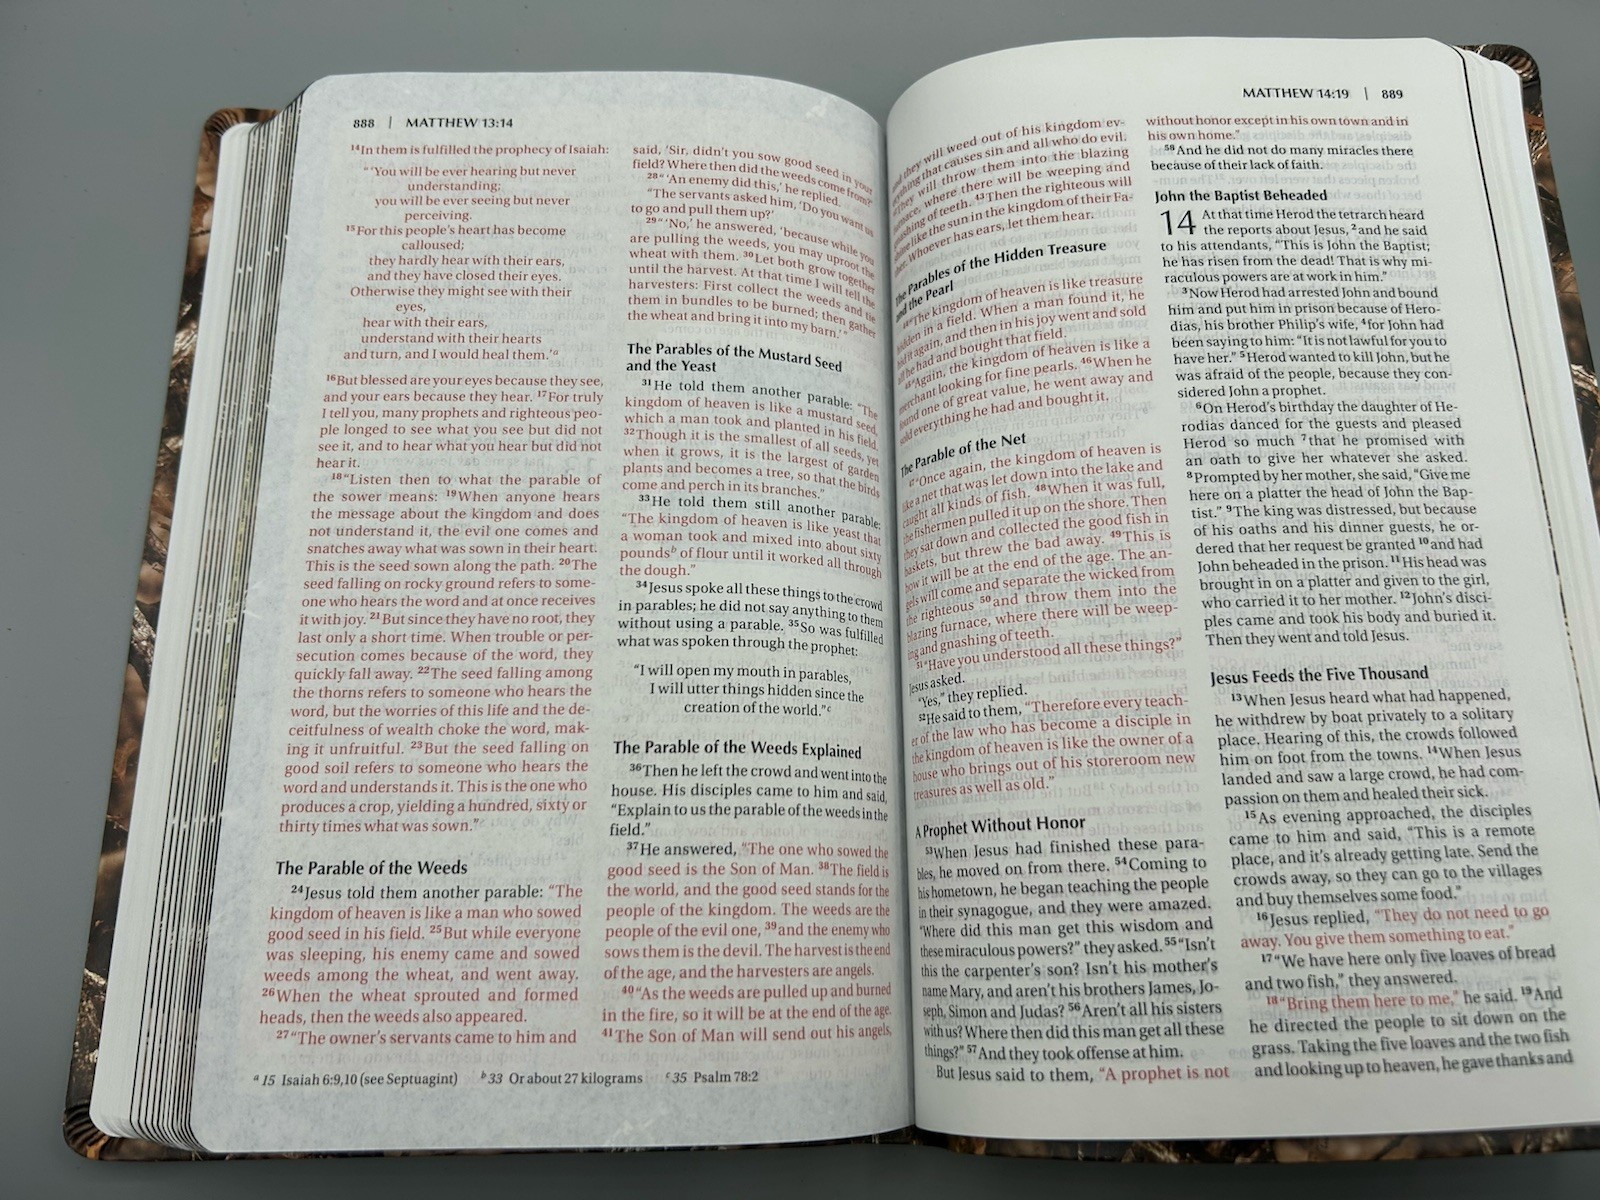 888 | MATTHEW 13:14
14In them is fulfilled the prophecy of Isaiah:
“‘You will be ever hearing but never
understanding;
you will be ever seeing but never
perceiving.
15For this people’s heart has become
calloused;
they hardly hear with their ears,
and they have closed their eyes.
Otherwise they might see with their
eyes,
hear with their ears,
understand with their hearts
and turn, and I would heal them.’a
16But blessed are your eyes because they see,
and your ears because they hear. 17For truly
I tell you, many prophets and righteous peo-
ple longed to see what you see but did not
see it, and to hear what you hear but did not
hear it.
18“Listen then to what the parable of
the sower means: 19When anyone hears
the message about the kingdom and does
not understand it, the evil one comes and
snatches away what was sown in their heart.
This is the seed sown along the path. 20The
seed falling on rocky ground refers to some-
one who hears the word and at once receives
it with joy. 21But since they have no root, they
last only a short time. When trouble or per-
secution comes because of the word, they
quickly fall away. 22The seed falling among
the thorns refers to someone who hears the
word, but the worries of this life and the de-
ceitfulness of wealth choke the word, mak-
ing it unfruitful. 23But the seed falling on
good soil refers to someone who hears the
word and understands it. This is the one who
produces a crop, yielding a hundred, sixty or
thirty times what was sown.”
The Parable of the Weeds
24Jesus told them another parable: “The
kingdom of heaven is like a man who sowed
good seed in his field. 25But while everyone
was sleeping, his enemy came and sowed
weeds among the wheat, and went away.
26When the wheat sprouted and formed
heads, then the weeds also appeared.
27“The owner’s servants came to him and
said, ‘Sir, didn’t you sow good seed in your
field? Where then did the weeds come from?’
28“‘An enemy did this,’ he replied.
“The servants asked him, ‘Do you want us
to go and pull them up?’
29“‘No,’ he answered, ‘because while you
are pulling the weeds, you may uproot the
wheat with them. 30Let both grow together
until the harvest. At that time I will tell the
harvesters: First collect the weeds and tie
them in bundles to be burned; then gather
the wheat and bring it into my barn.’”
The Parables of the Mustard Seed
and the Yeast
31He told them another parable: “The
kingdom of heaven is like a mustard seed,
which a man took and planted in his field.
32Though it is the smallest of all seeds, yet
when it grows, it is the largest of garden
plants and becomes a tree, so that the birds
come and perch in its branches.”
33He told them still another parable:
“The kingdom of heaven is like yeast that
a woman took and mixed into about sixty
poundsb of flour until it worked all through
the dough.”
34Jesus spoke all these things to the crowd
in parables; he did not say anything to them
without using a parable. 35So was fulfilled
what was spoken through the prophet:
“I will open my mouth in parables,
I will utter things hidden since the
creation of the world.”c
The Parable of the Weeds Explained
36Then he left the crowd and went into the
house. His disciples came to him and said,
“Explain to us the parable of the weeds in the
field.”
37He answered, “The one who sowed the
good seed is the Son of Man. 38The field is
the world, and the good seed stands for the
people of the kingdom. The weeds are the
people of the evil one, 39and the enemy who
sows them is the devil. The harvest is the end
of the age, and the harvesters are angels.
40“As the weeds are pulled up and burned
in the fire, so it will be at the end of the age.
41The Son of Man will send out his angels,
a 15 Isaiah 6:9,10 (see Septuagint) b 33 Or about 27 kilograms c 35 Psalm 78:2
MATTHEW 14:19 | 889
and they will weed out of his kingdom ev-
erything that causes sin and all who do evil.
They will throw them into the blazing
furnace, where there will be weeping and
gnashing of teeth. 43Then the righteous will
shine like the sun in the kingdom of their Fa-
ther. Whoever has ears, let them hear.
The Parables of the Hidden Treasure
and the Pearl
44“The kingdom of heaven is like treasure
hidden in a field. When a man found it, he
hid it again, and then in his joy went and sold
all he had and bought that field.
45“Again, the kingdom of heaven is like a
merchant looking for fine pearls. 46When he
found one of great value, he went away and
sold everything he had and bought it.
The Parable of the Net
47“Once again, the kingdom of heaven is
like a net that was let down into the lake and
caught all kinds of fish. 48When it was full,
the fishermen pulled it up on the shore. Then
they sat down and collected the good fish in
baskets, but threw the bad away. 49This is
how it will be at the end of the age. The an-
gels will come and separate the wicked from
the righteous 50and throw them into the
blazing furnace, where there will be weep-
ing and gnashing of teeth.
51“Have you understood all these things?”
Jesus asked.
“Yes,” they replied.
52He said to them, “Therefore every teach-
er of the law who has become a disciple in
the kingdom of heaven is like the owner of a
house who brings out of his storeroom new
treasures as well as old.”
A Prophet Without Honor
53When Jesus had finished these para-
bles, he moved on from there. 54Coming to
his hometown, he began teaching the people
in their synagogue, and they were amazed.
“Where did this man get this wisdom and
these miraculous powers?” they asked. 55“Isn’t
this the carpenter’s son? Isn’t his mother’s
name Mary, and aren’t his brothers James, Jo-
seph, Simon and Judas? 56Aren’t all his sisters
with us? Where then did this man get all these
things?” 57And they took offense at him.
But Jesus said to them, “A prophet is not
without honor except in his own town and in
his own home.”
58And he did not do many miracles there
because of their lack of faith.
John the Baptist Beheaded
14 At that time Herod the tetrarch heard
the reports about Jesus, 2and he said
to his attendants, “This is John the Baptist;
he has risen from the dead! That is why mi-
raculous powers are at work in him.”
3Now Herod had arrested John and bound
him and put him in prison because of Hero-
dias, his brother Philip’s wife, 4for John had
been saying to him: “It is not lawful for you to
have her.” 5Herod wanted to kill John, but he
was afraid of the people, because they con-
sidered John a prophet.
6On Herod’s birthday the daughter of He-
rodias danced for the guests and pleased
Herod so much 7that he promised with
an oath to give her whatever she asked.
8Prompted by her mother, she said, “Give me
here on a platter the head of John the Bap-
tist.” 9The king was distressed, but because
of his oaths and his dinner guests, he or-
dered that her request be granted 10and had
John beheaded in the prison. 11His head was
brought in on a platter and given to the girl,
who carried it to her mother. 12John’s disci-
ples came and took his body and buried it.
Then they went and told Jesus.
Jesus Feeds the Five Thousand
13When Jesus heard what had happened,
he withdrew by boat privately to a solitary
place. Hearing of this, the crowds followed
him on foot from the towns. 14When Jesus
landed and saw a large crowd, he had com-
passion on them and healed their sick.
15As evening approached, the disciples
came to him and said, “This is a remote
place, and it’s already getting late. Send the
crowds away, so they can go to the villages
and buy themselves some food.”
16Jesus replied, “They do not need to go
away. You give them something to eat.”
17“We have here only five loaves of bread
and two fish,” they answered.
18“Bring them here to me,” he said. 19And
he directed the people to sit down on the
grass. Taking the five loaves and the two fish
and looking up to heaven, he gave thanks and